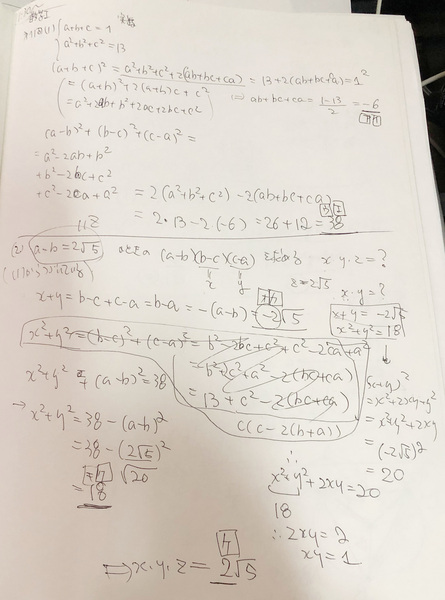 a+b+c=1
a²+b²+c²=13
(a+b+c)²=a²+b²+c²+2(ab+bc+ca)=13+2(ab+bc+ca)=1²
=(a+b)²+2(a+b)c+c²
=a²+2ab+b²+2ac+2bc+c²
⇔ ab+bc+ca=(1-13)/2=-6
(a-b)²+(b-c)²+(c-a)²=
=a²-2ab+b²
+b²-2bc+c²
+c²-2ca+a²
=2(a²+b²+c²)-2(ab+bc+ca)
=2・13-2(-6)=26+12=38
(2) a-b=2√5 のとき (a-b)(b-c)(c-a) x y z=?
x y z=2√5 x・y=?
x+y=b-c+c-a=b-a=-(a-b)=-2√5
x+y=-2√5
x²+y²=18
x²+y²=(b-c)²+(c-a)²=b²-2bc+c²+c²-2ca+a²
=b²+c²+a²-2(bc+ca)
=13+c²-2(bc+ca)
c(c-2(b+a))
x²+y²+(a-b)²=38
→x²+y²=38-(a-b)²
=38-(2√5)²
√20
=18
(x+y)²
=x²+2xy+y²
=x²+y²+2xy
=(-2√5)²
=20
∴
x²+y²+2xy=20
18
∴2xy=2
xy=1
⇔x・y・z=2√5